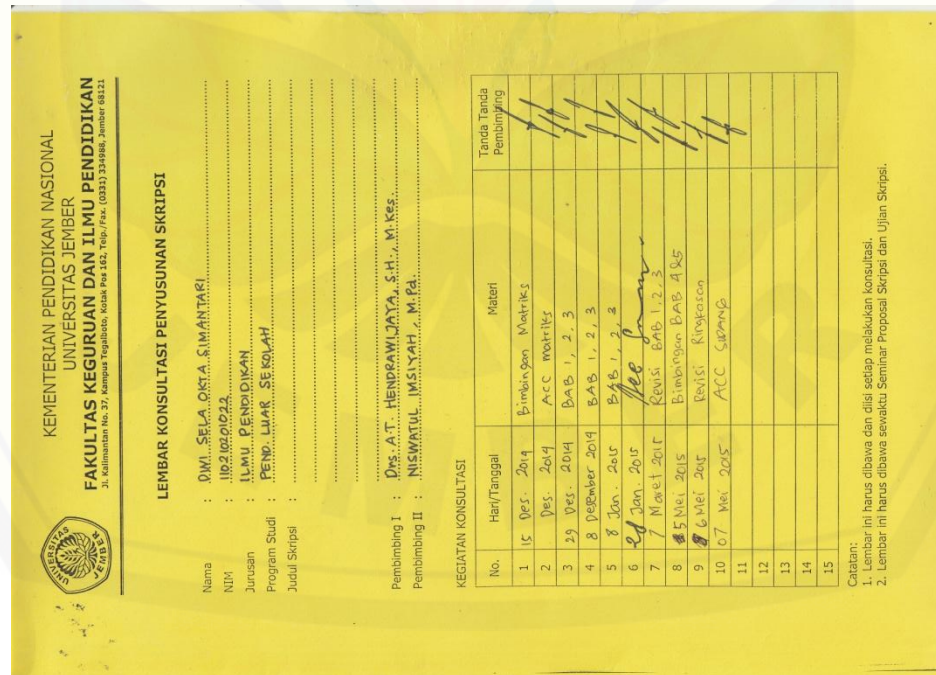 KEMENTERIAN PENDIDIKAN NASIONAL
UNIVERSITAS JEMBER
FAKULTAS KEGURUAN DAN ILMU PENDIDIKAN
Jl. Kalimantan No. 37, Kampus Tegalboto, Kotak Pos 162, Telp./Fax. (0331) 334988, Jember 68121
UNIVERSITAS JEMBER
LEMBAR KONSULTASI PENYUSUNAN SKRIPSI
Nama : DWI SELA OKTA SIMANTARI
NIM : 110210201022
Jurusan : ILMU PENDIDIKAN
Program Studi : PEND. LUAR SEKOLAH
Judul Skripsi :
Pembimbing I : Drs. A.T. HENDRAWIJAYA, S.H., M.Kes.
Pembimbing II : NISWATUL IMSIYAH, M.Pd.
KEGIATAN KONSULTASI
No. Hari/Tanggal Materi Tanda Tanda Pembimbing
1 15 Des. 2014 Bimbingan Matriks
2 Des. 2014 ACC matriks
3 29 Des. 2014 BAB 1, 2, 3
4 8 Desember 2014 BAB 1, 2, 3
5 8 Jan. 2015 BAB 1, 2, 3
6 28 Jan. 2015
7 7 Maret 2015 Revisi BAB 1, 2, 3
8 5 Mei 2015 Bimbingan BAB 4 & 5
9 6 Mei 2015 Revisi Ringkasan
10 07 Mei 2015 ACC SIDANG
11
12
13
14
15
Catatan:
1. Lembar ini harus dibawa dan diisi setiap melakukan konsultasi.
2. Lembar ini harus dibawa sewaktu Seminar Proposal Skripsi dan Ujian Skripsi.